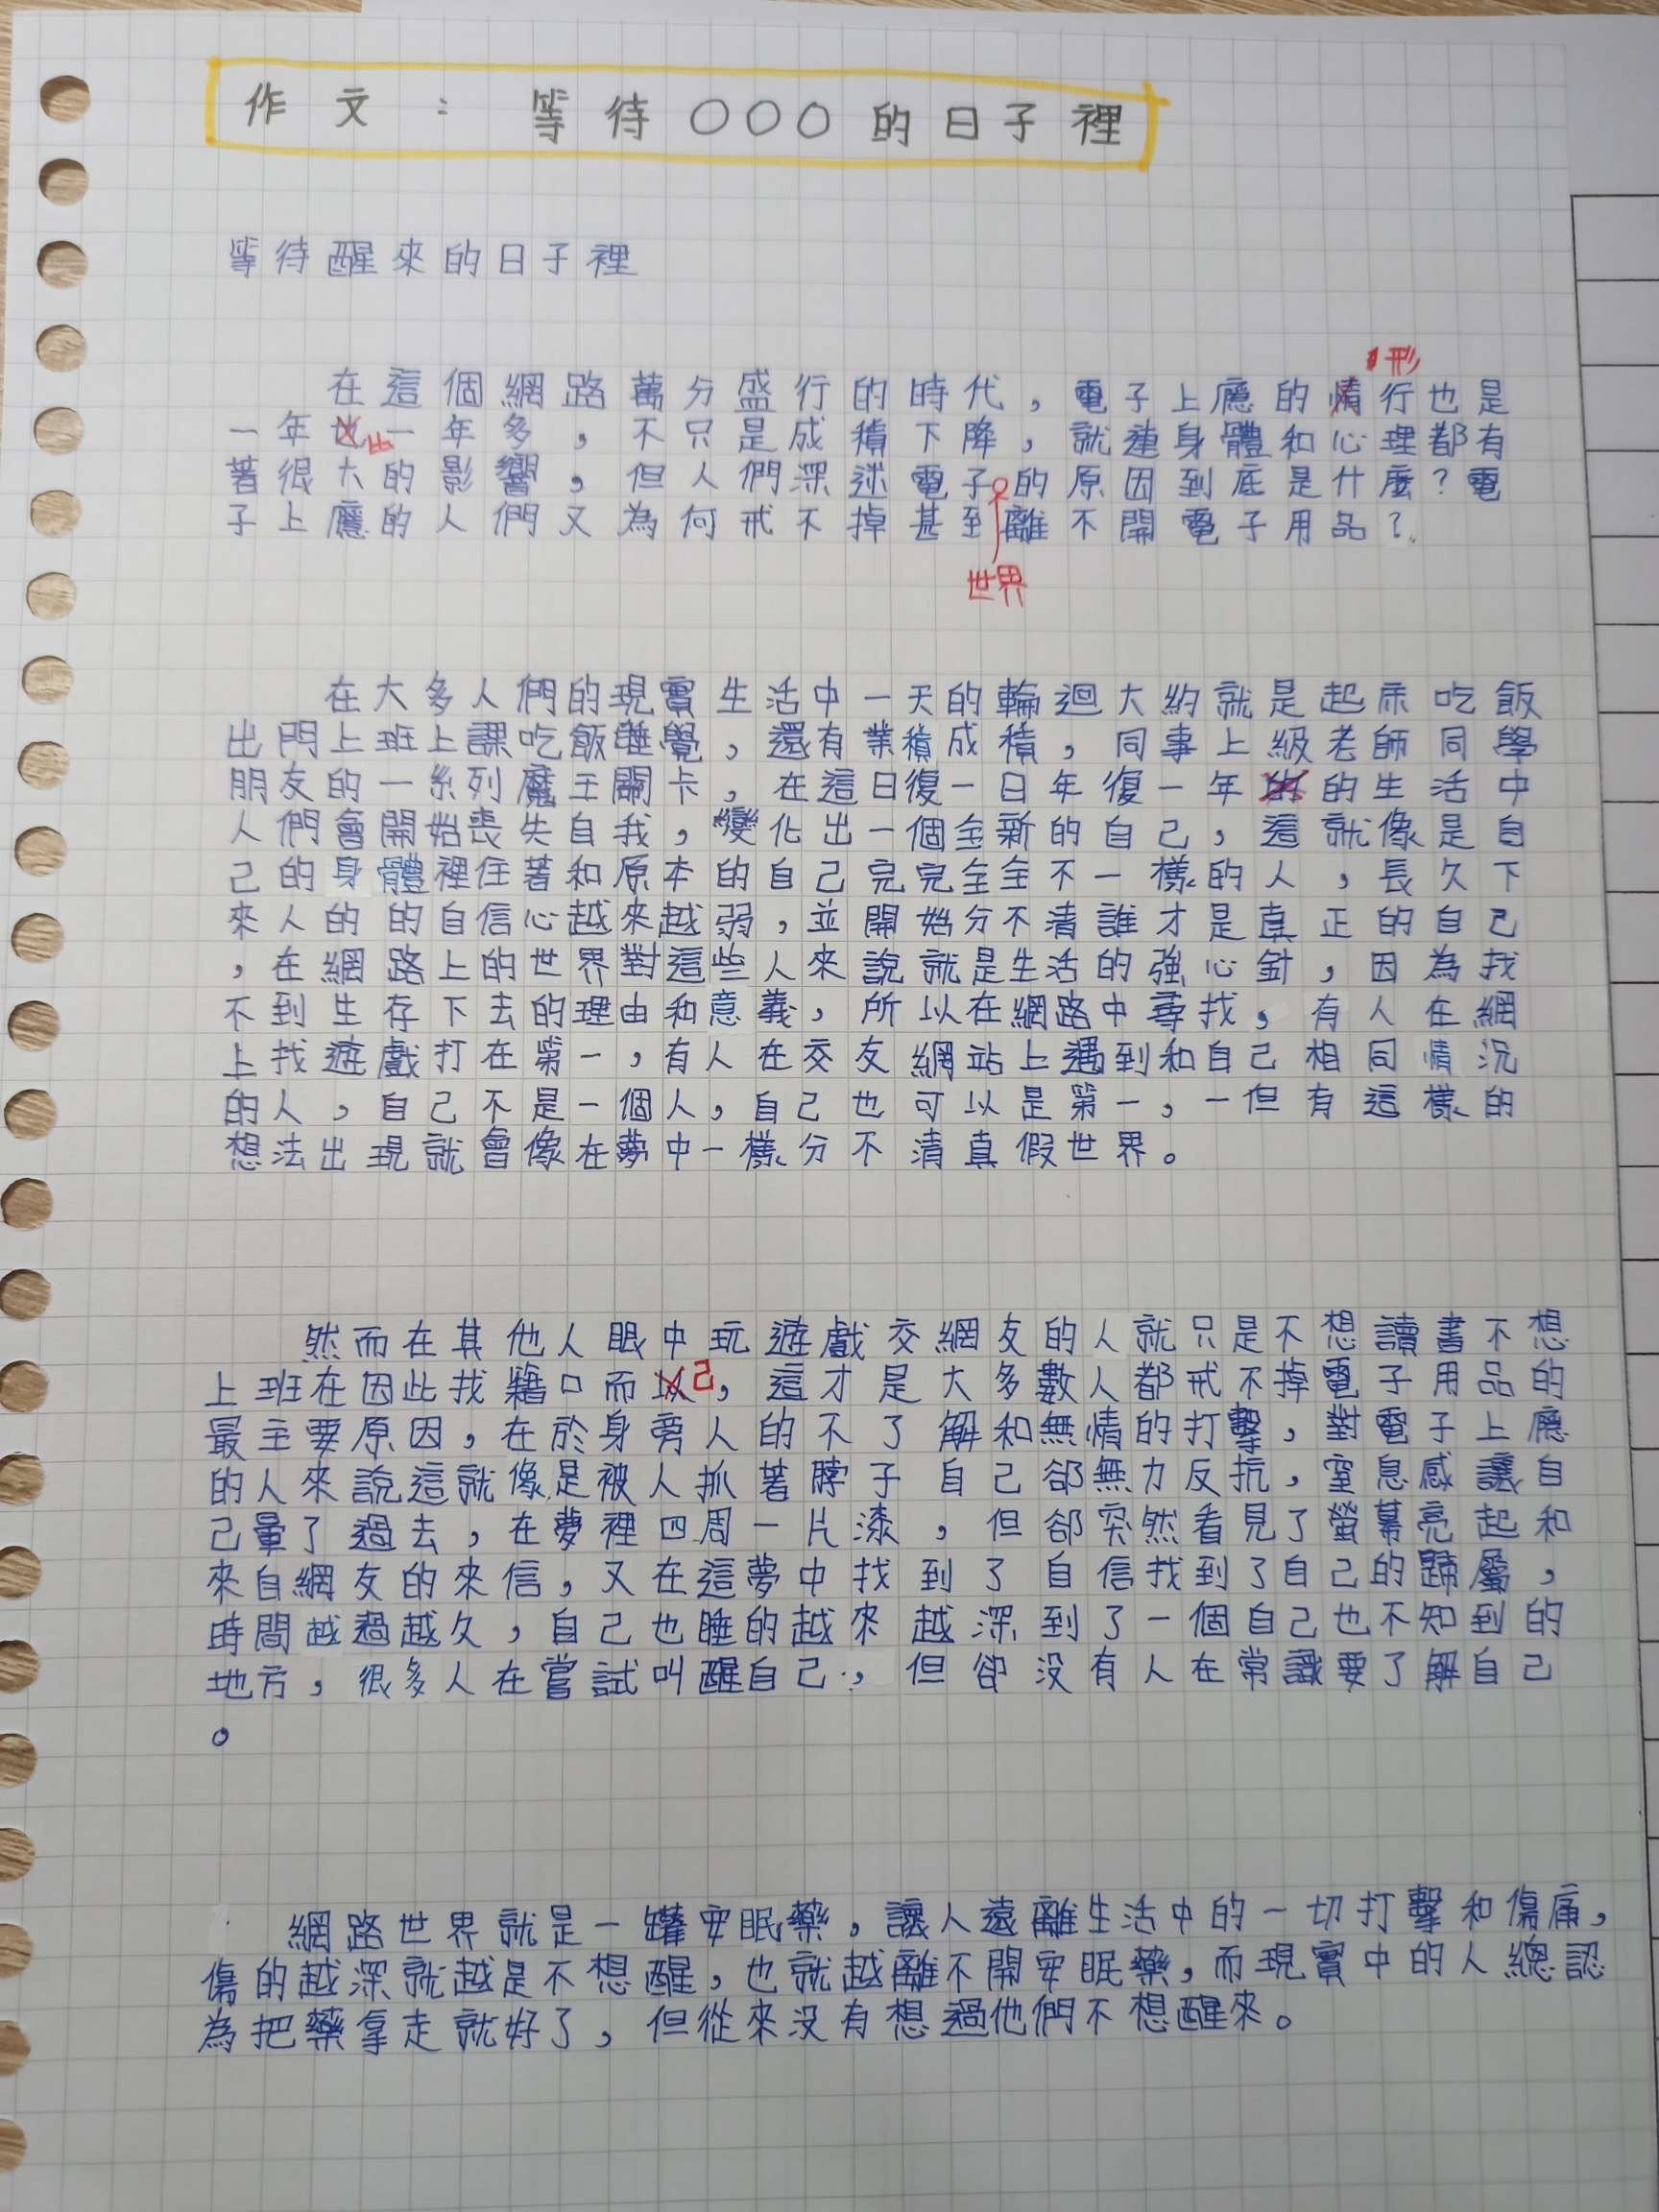 作文：等待○○○的日子裡
等待醒來的日子裡
形
在這個網路萬分盛行的時代，電子上廳的情行也是
一年比一年多，不只是成積下降，就連身體和心理都有
著很大的影響，但人們深迷電子的原因到底是什麼？電
子上廳的人們又為何戒不掉甚至離不開電子用品？
世界
在大多人們的現實生活中一天的輪迴大約就是起床吃飯
出門上班上課吃飯睡覺，還有業積成積，同事上級老師同學
朋友的一系列魔王關卡，在這日復一日年復一年的生活中
人們會開始喪失自我，變化出一個全新的自己，這就像是自
己的身體裡住著和原本的自己完完全全不一樣的人，長久下
來人的的自信心越來越弱，並開始分不清誰才是真正的自己
，在網路上的世界對這些人來說就是生活的強心針，因為找
不到生存下去的理由和意義，所以在網路中尋找，有人在網
上找遊戲打在第一，有人在交友網站上遇到和自己相同情況
的人，自己不是一個人，自己也可以是第一，一但有這樣的
想法出現就會像在夢中一樣分不清真假世界。
然而在其他人眼中玩遊戲交網友的人就只是不想讀書不想
上班在因此找藉口而己，這才是大多數人都戒不掉電子用品的
最主要原因，在於身旁人的不了解和無情的打擊，對電子上廳
的人來說這就像是被人抓著脖子自己卻無力反抗，窒息感讓自
己暈了過去，在夢裡四周一片漆，但卻突然看見了螢幕亮起和
來自網友的來信，又在這夢中找到了自信找到了自己的蹄屬，
時間越過越久，自己也睡的越來越深到了一個自己也不知到的
地方，很多人在嘗試叫醒自己，但卻沒有人在常識要了解自己
。
網路世界就是一罐安眠藥，讓人遠離生活中的一切打擊和傷痛，
傷的越深就越是不想醒，也就越離不開安眠藥，而現實中的人總認
為把藥拿走就好了，但從來沒有想過他們不想醒來。